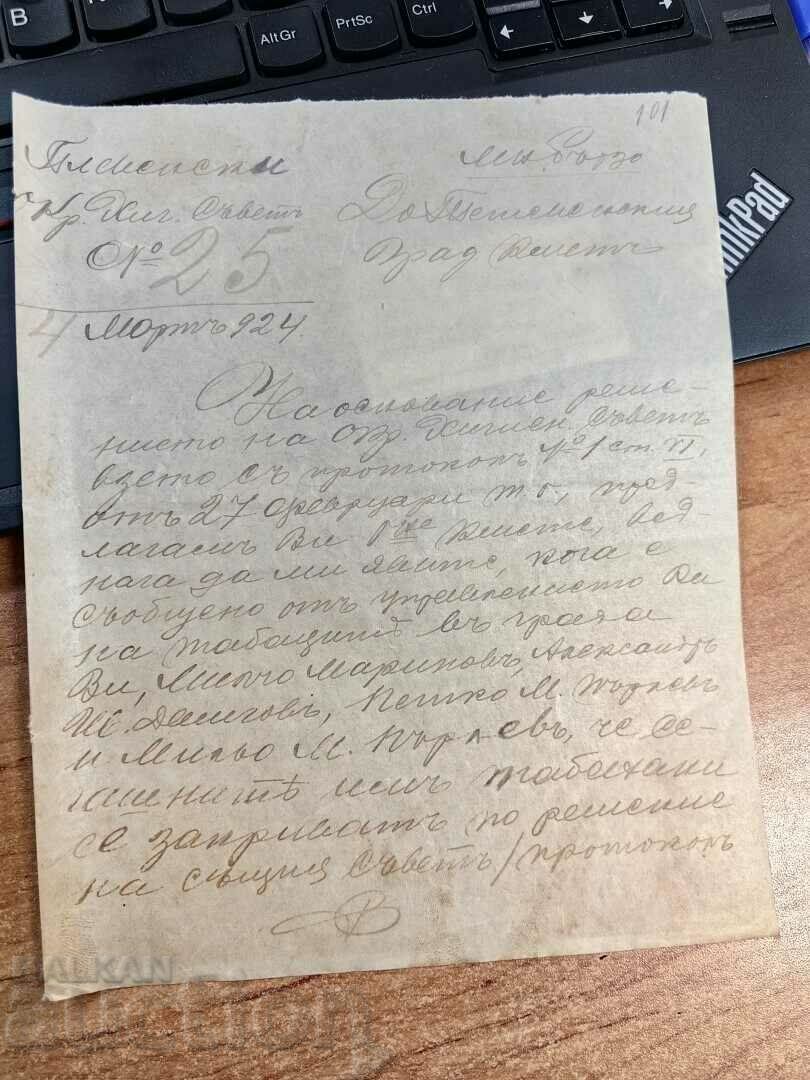 B
AltGr
PrtSc
Ctrl
101
Плевенски
Окр. Хиг. Съветъ
№ 25
4 Мартъ 924
мн. бързо
До Тетевенския
Град. Кметъ
На основание реше-
нието на Окр. Хигиен. Съветъ
взето съ протоколъ № 1 ст. VI,
отъ 27 февруари т. г., пред-
лагамъ Ви Г-не Кмете, вед-
нага да ми явите, кога е
съобщено отъ управлението Ви
на табацитѣ въ града
Ви, Минчо Мариновъ, Александъръ
Ив. Далговъ, Петко М. Пърлевъ
и Мильо М. Пърлевъ, че се-
гашнитѣ имъ табахани
се закриватъ по решение
на същия Съветъ / протоколъ
ThinkPad
BALKAN
auction